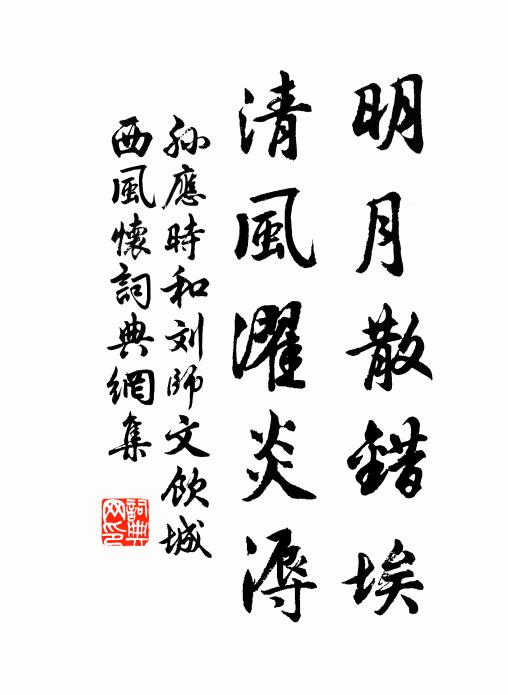 明月散錯埃
清風濯炎溽
孙應時和刘師文飲城
西風懷詞典網集
詞典
网印